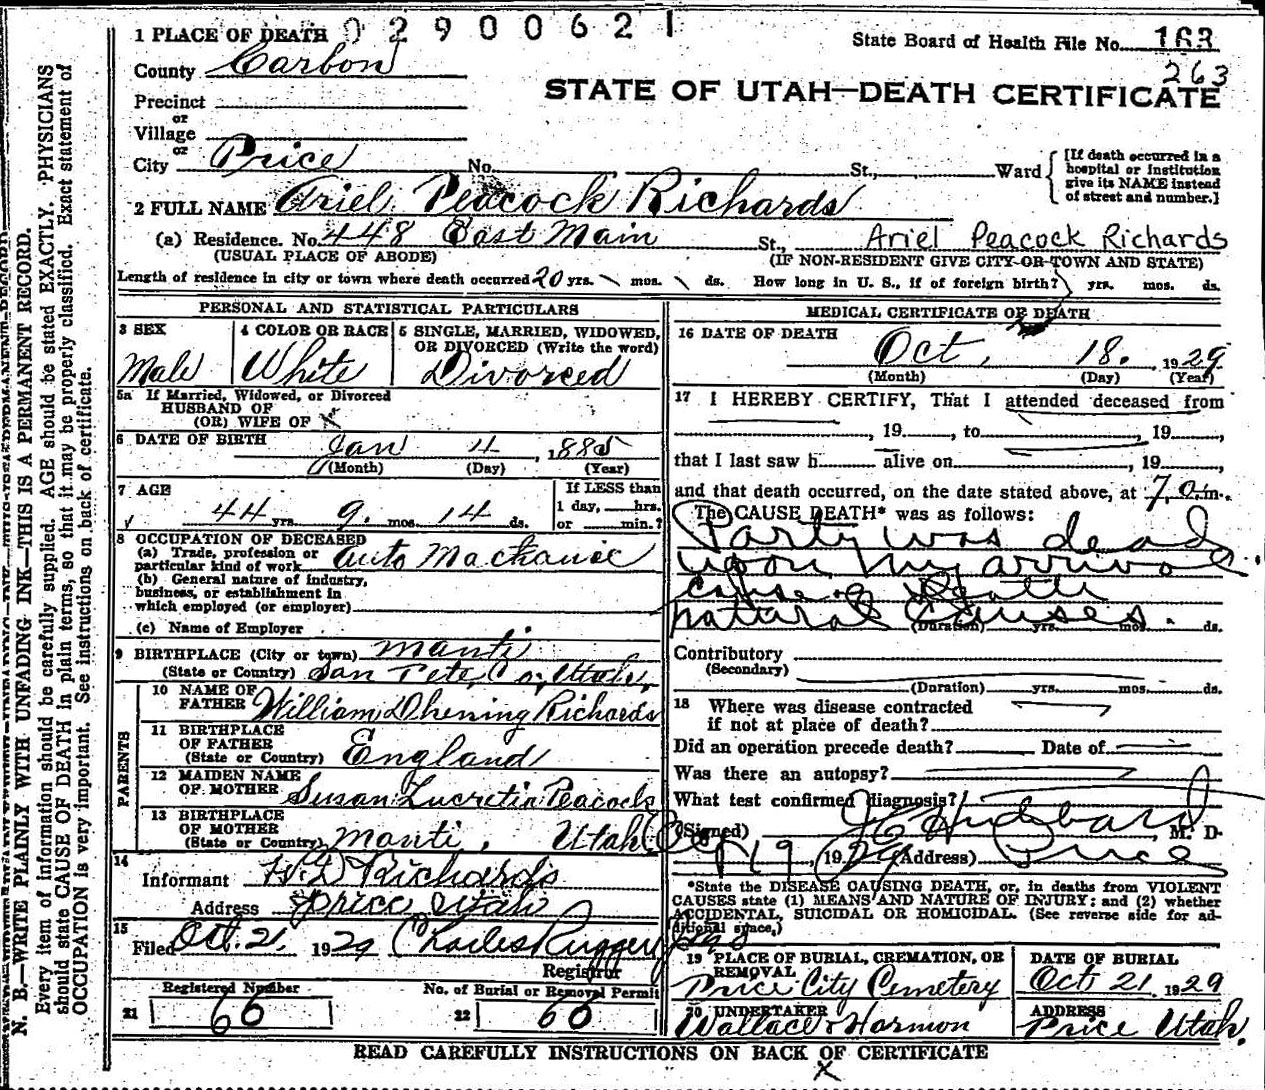 02900621
1 PLACE OF DEATH
State Board of Health File No. 163
263
County Carbon
STATE OF UTAH—DEATH CERTIFICATE
Precinct
or
Village
or
City Price No. St., Ward
[If death occurred in a
hospital or institution
give its NAME instead
of street and number.]
2 FULL NAME Ariel Peacock Richards
(a) Residence. No. 448 East Main St., Ariel Peacock Richards
(USUAL PLACE OF ABODE) (IF NON-RESIDENT GIVE CITY OR TOWN AND STATE)
Length of residence in city or town where death occurred 20 yrs. mos. ds. How long in U. S., if of foreign birth? yrs. mos. ds.
PERSONAL AND STATISTICAL PARTICULARS
3 SEX 4 COLOR OR RACE 5 SINGLE, MARRIED, WIDOWED,
OR DIVORCED (Write the word)
Male White Divorced
5a If Married, Widowed, or Divorced
HUSBAND OF
(OR) WIFE OF X
6 DATE OF BIRTH Jan 4, 1885
(Month) (Day) (Year)
7 AGE If LESS than
1 day, hrs.
44 yrs. 9. mos. 14 ds. or min.?
8 OCCUPATION OF DECEASED
(a) Trade, profession or
particular kind of work Auto Machanic
(b) General nature of industry,
business, or establishment in
which employed (or employer)
(c) Name of Employer
9 BIRTHPLACE (City or town) Manti
(State or Country) San Pete Co, Utah.
PARENTS
10 NAME OF
FATHER William Richards
11 BIRTHPLACE
OF FATHER
(State or Country) England
12 MAIDEN NAME
OF MOTHER Susan Lucretia Peacock
13 BIRTHPLACE
OF MOTHER
(State or Country) Manti, Utah
14
Informant W D Richards
Address Price Utah
15
Filed Oct. 21 1929 Charles Ruggeri
Registrar
Registered Number No. of Burial or Removal Permit
21 66 22 66
MEDICAL CERTIFICATE OF DEATH
16 DATE OF DEATH
Oct. 18. 1929
(Month) (Day) (Year)
17 I HEREBY CERTIFY, That I attended deceased from
, 19 , to , 19 ,
that I last saw h alive on , 19 ,
and that death occurred, on the date stated above, at 7 a.m.
The CAUSE DEATH* was as follows:
Party was dead
upon my arrival.
cause of Death
natural Causes.
(Duration) yrs. mos. ds.
Contributory
(Secondary)
(Duration) yrs. mos. ds.
18 Where was disease contracted
if not at place of death?
Did an operation precede death? Date of
Was there an autopsy?
What test confirmed diagnosis?
(Signed) Hubbard M. D.
Oct 19, 1929 (Address) Price
*State the DISEASE CAUSING DEATH, or, in deaths from VIOLENT
CAUSES state (1) MEANS AND NATURE OF INJURY; and (2) whether
ACCIDENTAL, SUICIDAL OR HOMICIDAL. (See reverse side for ad-
ditional space.)
19 PLACE OF BURIAL, CREMATION, OR
REMOVAL DATE OF BURIAL
Price City Cemetery Oct 21 1929
20 UNDERTAKER ADDRESS
Wallace & Harmon Price Utah.
READ CAREFULLY INSTRUCTIONS ON BACK OF CERTIFICATE
X
N. B.—WRITE PLAINLY WITH UNFADING INK—THIS IS A PERMANENT RECORD.
Every item of information should be carefully supplied. AGE should be stated EXACTLY. PHYSICIANS
should state CAUSE OF DEATH in plain terms, so that it may be properly classified. Exact statement of
OCCUPATION is very important. See instructions on back of certificate.